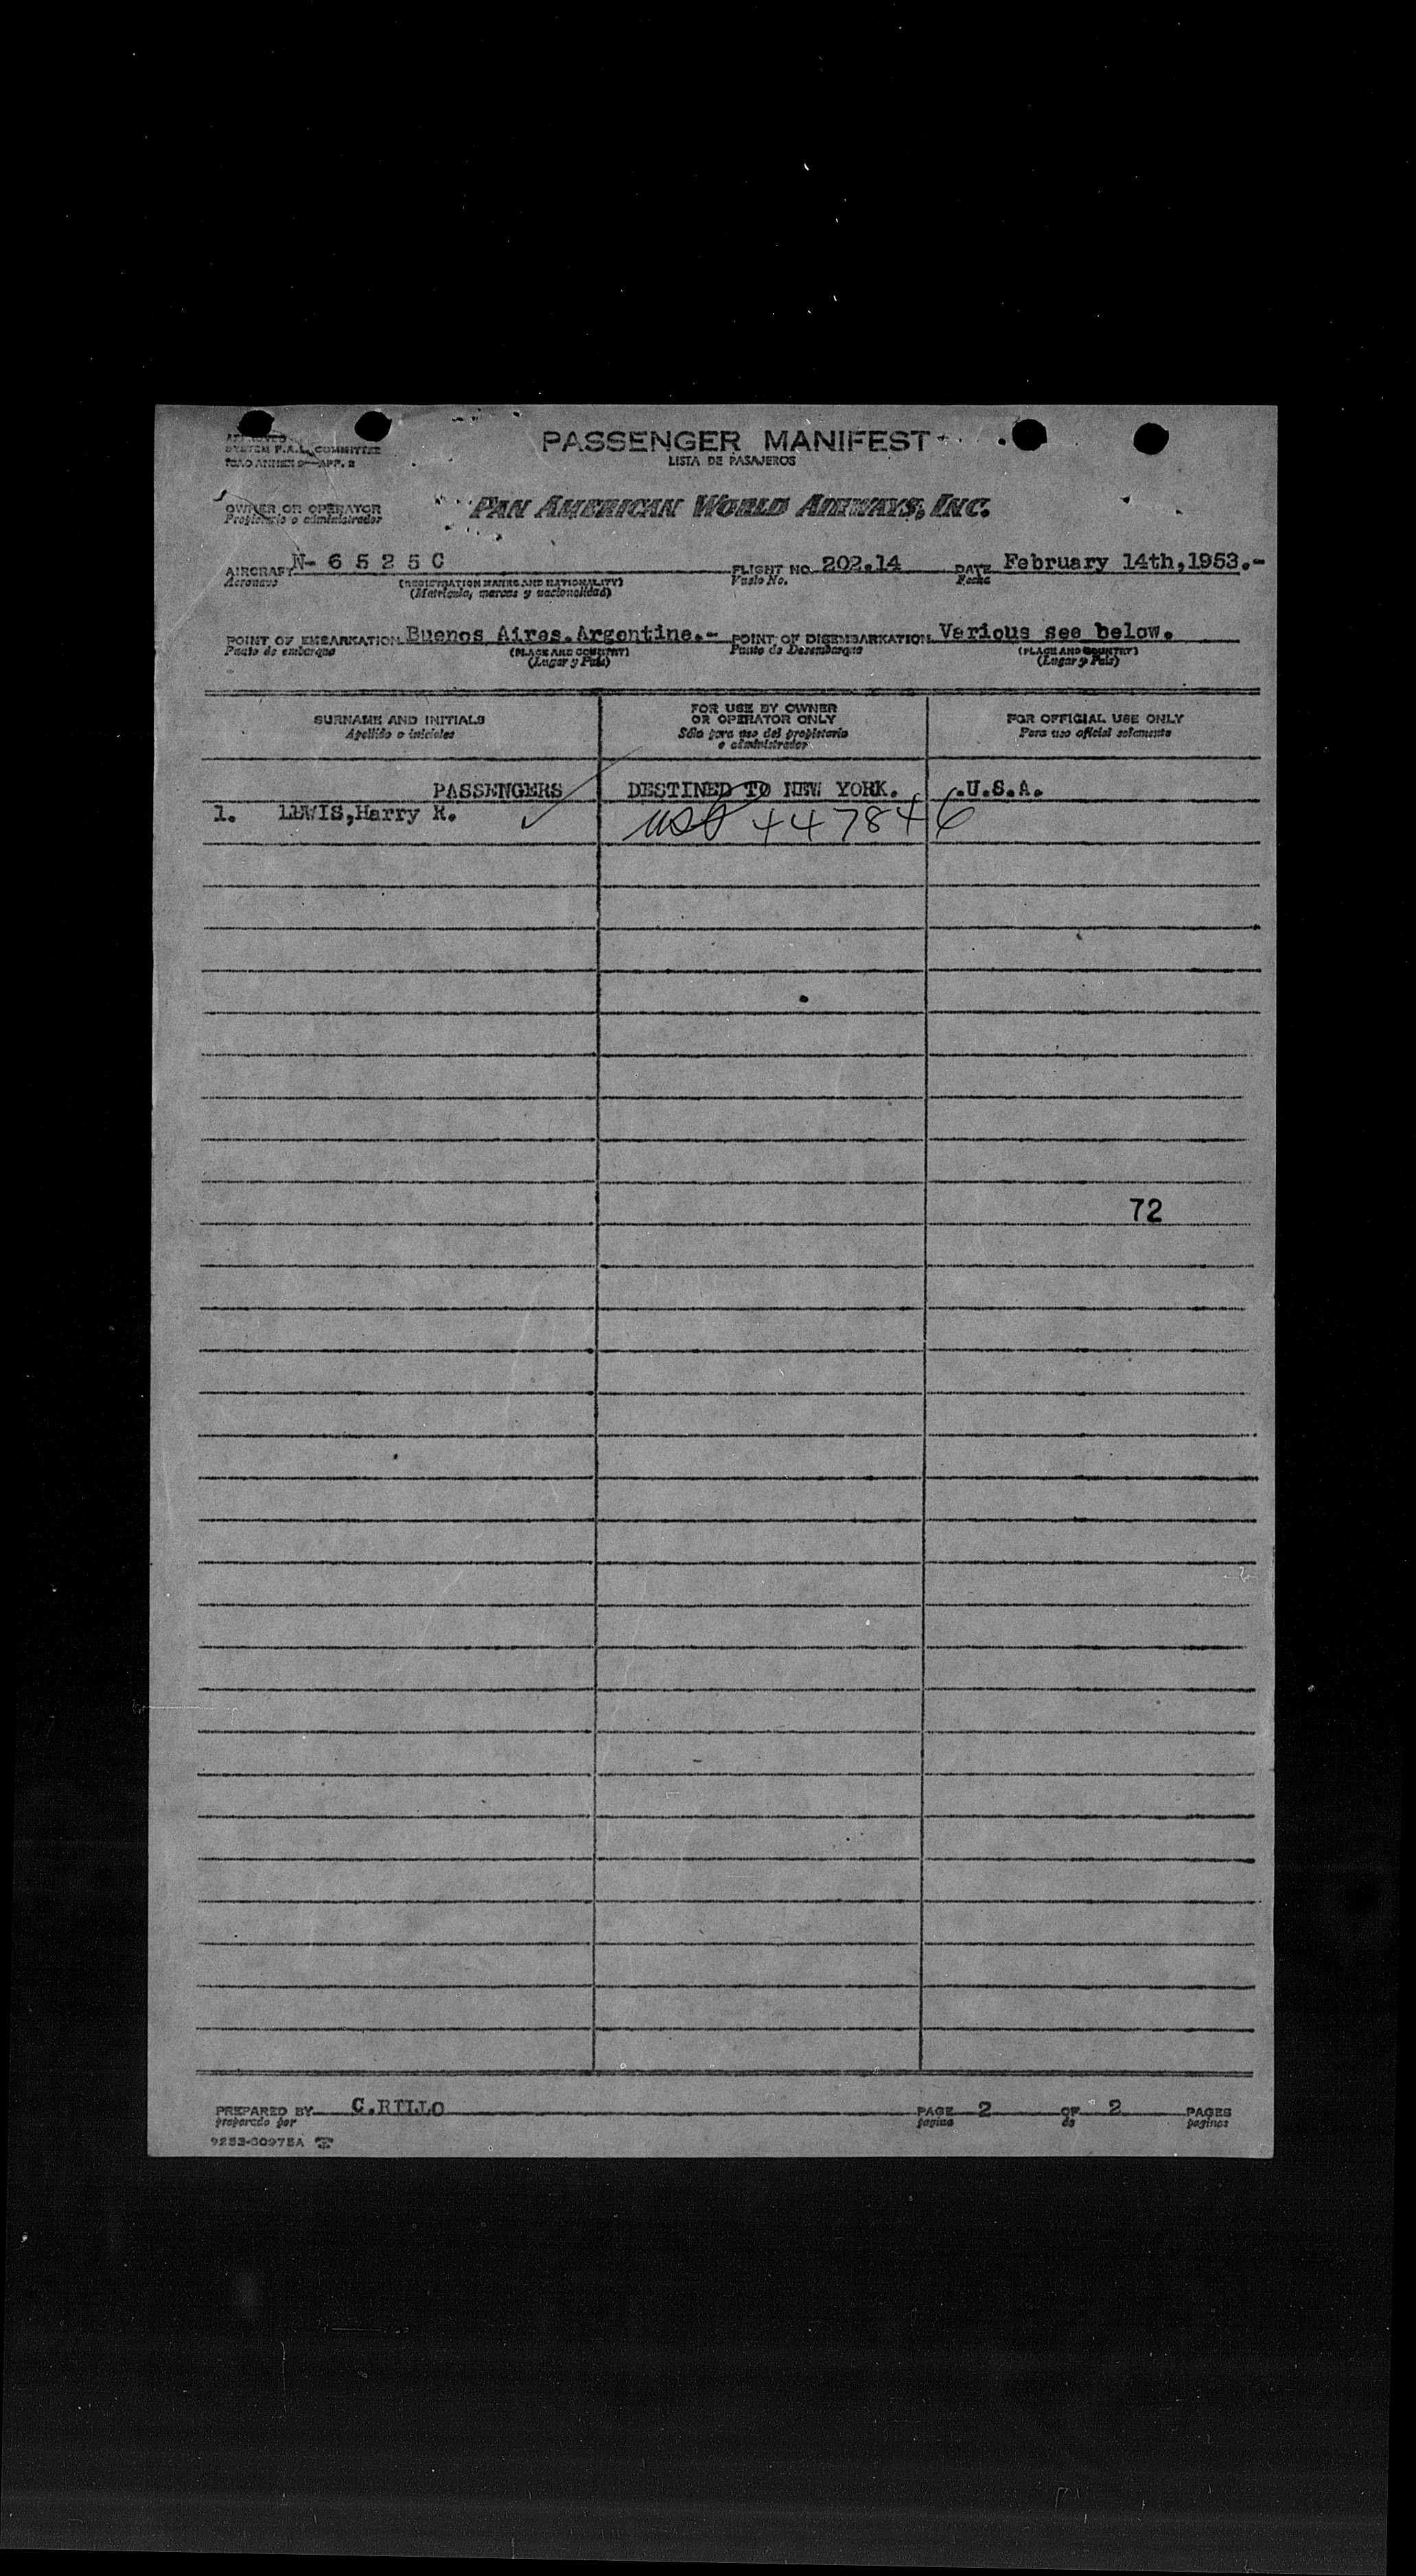 PASSENGER MANIFEST
LISTA DE PASAJEROS
SYSTEM F.A.L. COMMITTEE
ICAO ANNEX 9—APP. 3
OWNER OR OPERATOR
Propietario o administrador
PAN AMERICAN WORLD AIRWAYS, INC.
AIRCRAFT N- 6 5 2 5 C FLIGHT NO. 202.14 DATE February 14th,1953.-
Aeronave (REGISTRATION MARKS AND NATIONALITY) Vuelo No. Fecha
(Matrícula, marcas y nacionalidad)
POINT OF EMBARKATION Buenos Aires.Argentine.- POINT OF DISEMBARKATION Various see below.
Punto de embarque (PLACE AND COUNTRY) Punto de Desembarque (PLACE AND COUNTRY)
(Lugar y País) (Lugar y País)
SURNAME AND INITIALS
Apellido e iniciales
FOR USE BY OWNER
OR OPERATOR ONLY
Sólo para uso del propietario
o administrador
FOR OFFICIAL USE ONLY
Para uso oficial solamente
PASSENGERS DESTINED TO NEW YORK. .U.S.A.
1. LEWIS,Harry R. 447846
72
PREPARED BY C.RILLO PAGE 2 OF 2 PAGES
preparado por pagina de paginas
9253-60975A